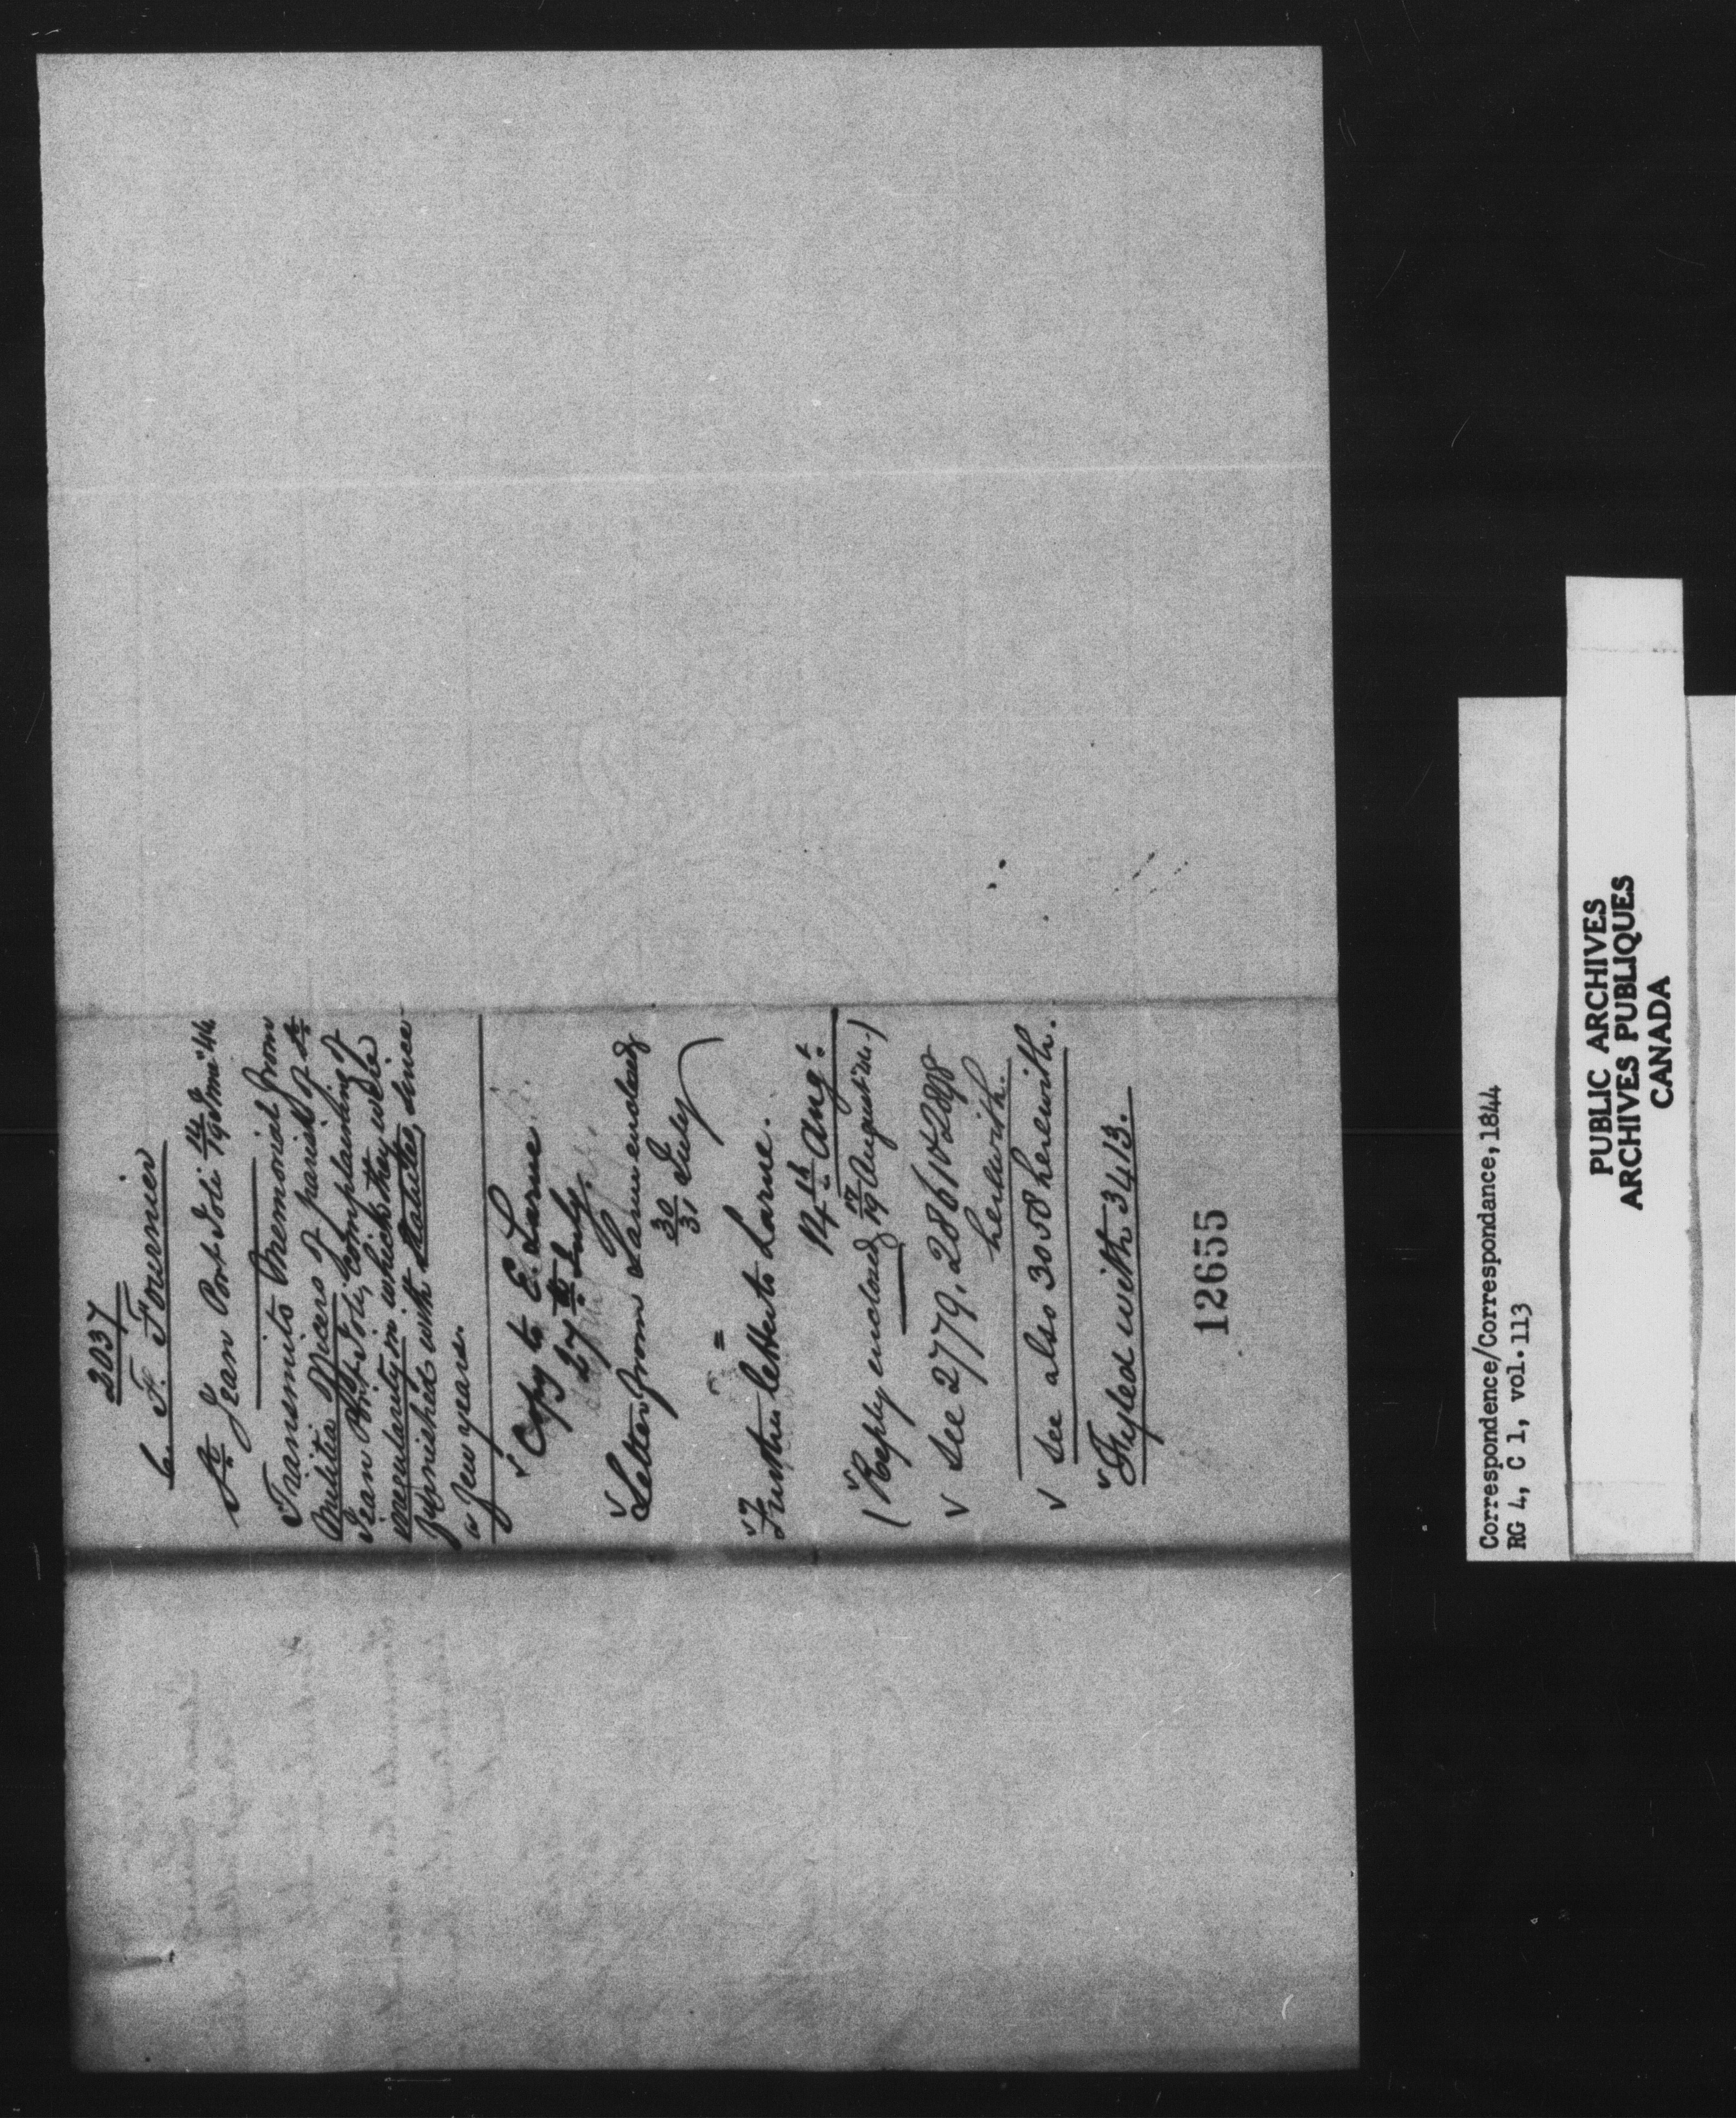 2037
F. Fournier
St. Jean Port Joli 14/19 June "44
Transmits Memorial from
Militia Officers of parish of St.
Jean Port Joli, complaining of
irregularity in which they were
furnished with Statutes, since
a few years.
✓ Copy to E. Larue
27th July.
✓ Letter from Larue enclosed
30/31 July
=
✓ Further letter to Larue.
14th Augt.
✓ (Reply enclosed 17/19 August "44.)
✓ See 2779, 2861 & 2898
herewith.
✓ See also 3058 herewith.
✓ Fyled with 3413.
12655
Correspondence/Correspondance, 1844
RG 4, C 1, vol. 113
PUBLIC ARCHIVES
ARCHIVES PUBLIQUES
CANADA